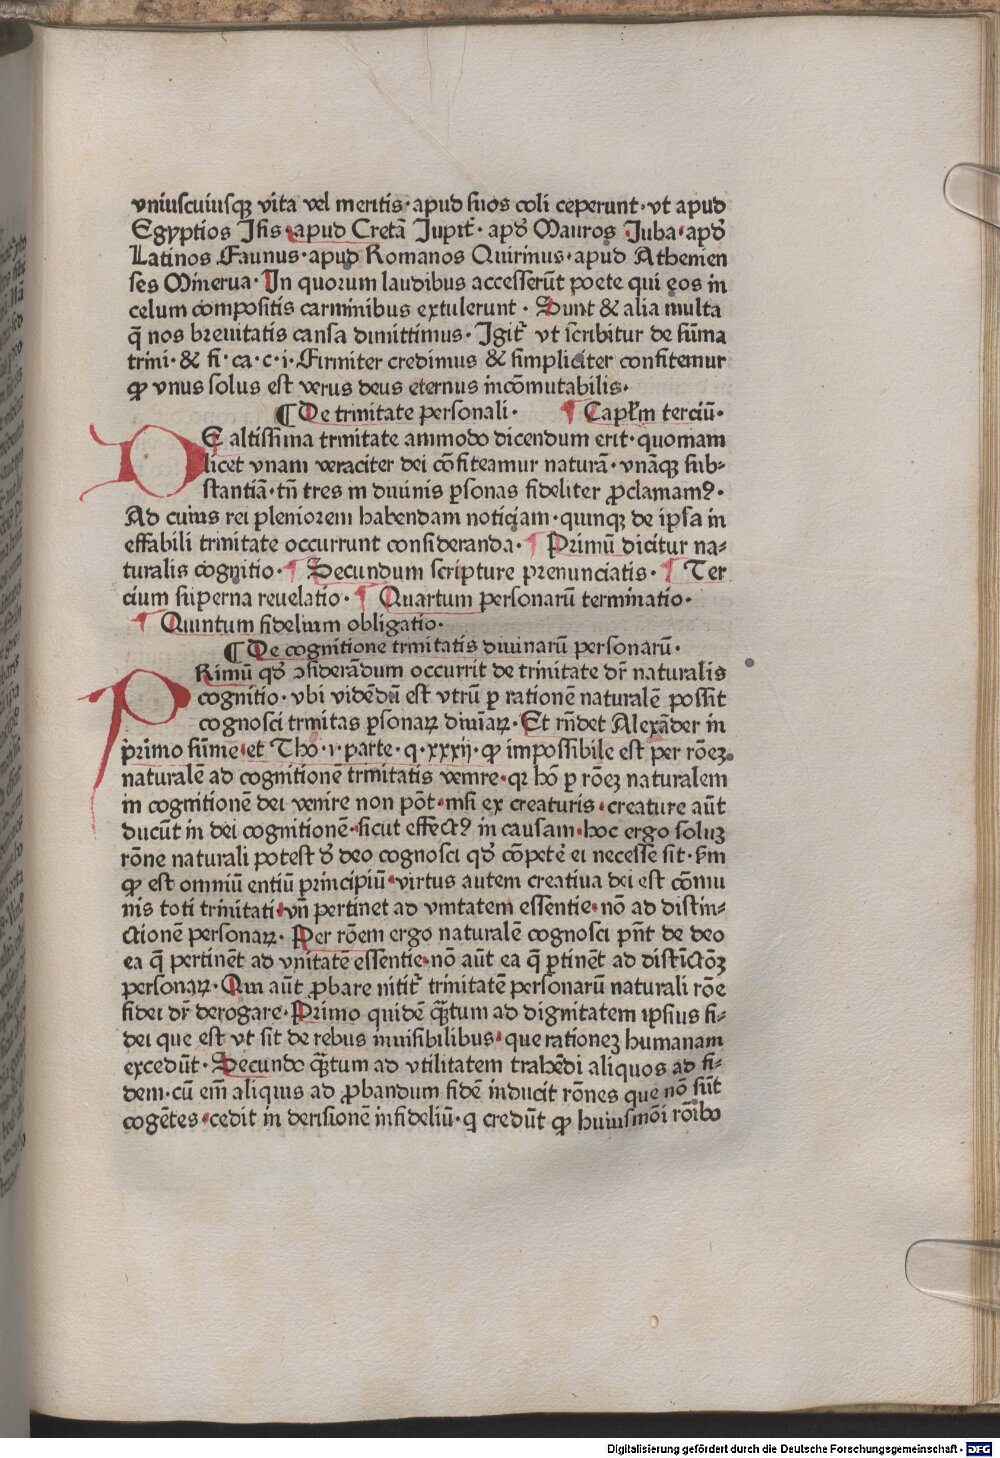 vniuscuiusqꝫ vita vel meritis· apud suos coli ceperunt· vt apud
Egyptios Isis· apud Cretā Iupit᷑· apď Mauros Iuba· apď
Latinos Faunus· apud Romanos Quirinus· apud Athenien
ses Minerua· In quorum laudibus accesserūt poete qui eos in
celum compositis carminibus extulerunt· Sunt & alia multa
q̄ nos breuitatis causa dimittimus· Igit᷑ vt scribitur de sūma
trini· & fi· ca· c· i· Firmiter credimus & simpliciter confitemur
ꝙ vnus solus est verus deus eternus incōmutabilis·
¶ De trinitate personali· ¶ Capl̄m terciū·
DE altissima trinitate ammodo dicendum erit· quoniam
licet vnam veraciter dei cōfiteamur naturā· vnāqꝫ sub⸗
stantiā· tn̄ tres in diuinis ꝑsonas fideliter ꝓclamamꝰ·
Ad cuius rei pleniorem habendam noticiam· quinqꝫ de ipsa in
effabili trinitate occurrunt consideranda· ¶ Primū dicitur na⸗
turalis cognitio· ¶ Secundum scripture prenunciatis· ¶ Ter
cium superna reuelatio· ¶ Quartum personarū terminatio·
¶ Quintum fidelium obligatio·
¶ De cognitione trinitatis diuinarū personarū·
PRimū qď ↄsiderādum occurrit de trinitate dr̄ naturalis
cognitio· vbi vidēdū est vtrū ꝑ rationē naturalē possit
cognosci trinitas ꝑsonaꝝ diuīaꝝ· Et rn̄det Alexāder in
primo sūme· et Tho· i· parte· q· xxxij· ꝙ impossibile est per rōeꝫ
naturalē ad cognitionē trinitatis venire· qꝛ hō ꝑ rōeꝫ naturalem
in cognitionē dei venire non pōt· nisi ex creaturis· creature aūt
ducūt in dei cognitionē· sicut effectꝰ in causam· hoc ergo soluꝫ
rōne naturali potest ď deo cognosci qď cōpetē ei necesse sit· ẜm
ꝙ est omniū entiū principiū· virtus autem creatiua dei est cōmu
nis toti trinitati· vn̄ pertinet ad vnitatem essentie· nō ad distin⸗
ctionē personaꝝ· Per rōem ergo naturalē cognosci pn̄t de deo
ea q̄ pertinēt ad vnitatē essentie· nō aūt ea q̄ ꝑtinēt ad distīctōꝫ
personaꝝ· Qui aūt ꝓbare nitit᷑ trinitatē personarū naturali rōe
fidei dr̄ derogare· Primo quidē q̄ꝫtum ad dignitatem ipsius fi⸗
dei que est vt sit de rebus inuisibilibus· que rationeꝫ humanam
excedūt· Secundo q̄ꝫtum ad vtilitatem trahēdi aliquos ad fi⸗
dem· cū em̄ aliquis ad ꝓbandum fidē inducit rōnes que nō sūt
cogētes· cedit in derisionē infideliū· q credūt ꝙ huiusmōi rōibꝰ
Digitalisierung gefördert durch die Deutsche Forschungsgemeinschaft - DFG